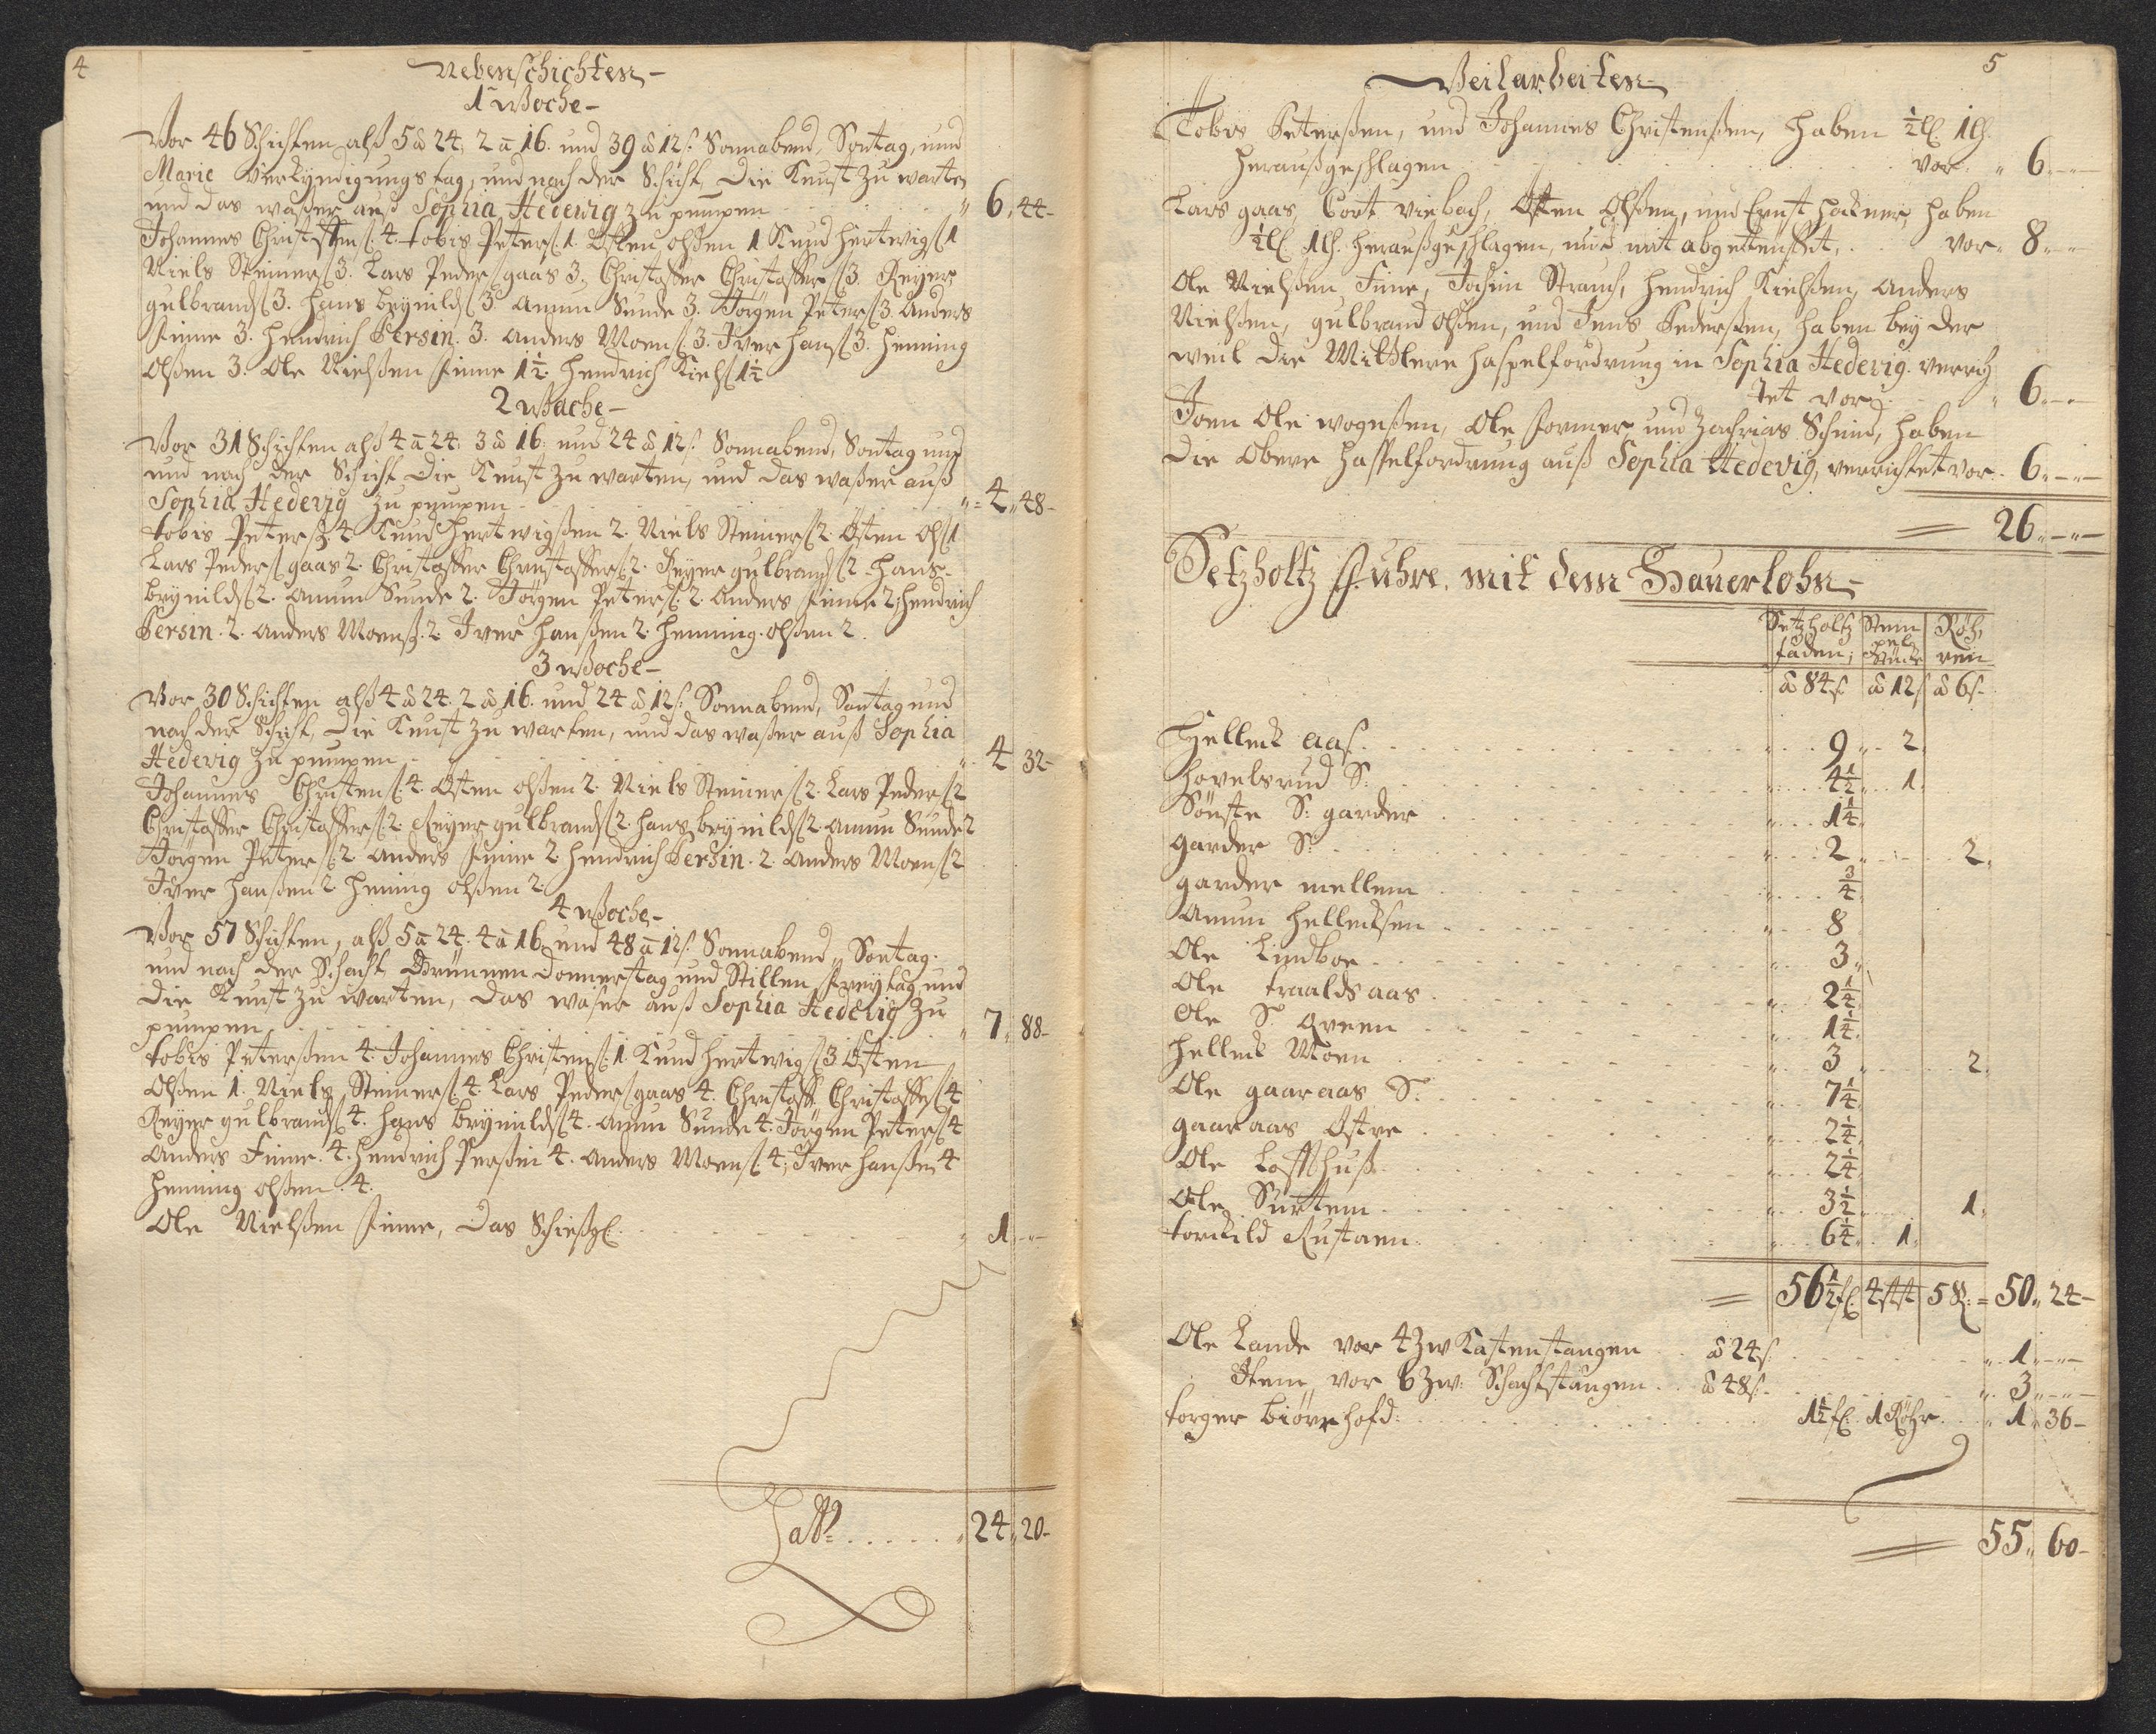 4
Nebenschichten
1 Woche
Vor 46 Schichten alß 5 à 24, 2 à 16. und 39 à 12 s: Sonnabend, Sontag, und
Marie Verkyndigungs tag, und nach der Schicht, Die Kunst zu warten
und das waßer auß Sophia Hedewig zu pumpen " 6. 44-
Johannes Christens: 4. tobis Peters: 1. Osten olßen 1 Knud hertwigs 1
Niels Steiners 3. Lars Peders gaas 3. Christoffer Christoffers 3. Reyer
gulbrands 3. hans brynilds 3. Amun Sunde 3. Jörgen Peters 3. Anders
Finne 3. hendrich Persin. 3. anders Moens 3. Iver hans 3. Henning
Olßen 3. Ole Nielßen Finne 1½. hendrich Niels 1½
2 Woche
Vor 31 Schichten alß 4 à 24. 3 à 16. und 24 à 12 s: Sonnabend, Sontag und
und nach der Schicht Die Kunst zu warten, und das waßer auß
Sophia Hedevig zu pumpen " 4 " 48-
tobis Peters: 4 Knud hertwigßen 2. Niels Steiners 2. Osten Ols 1
Lars Peders gaas 2. Christoffer Christoffers 2. Reyer gulbrands 2 hans
brynilds 2. Amun Sunde 2. Jörgen Peters 2. Anders Finne 2. hendrich
Persin. 2. anders Moens. 2 Iver hanßen 2. henning olßen 2.
3 Woche
Vor 30 Schichten alß 4 à 24. 2 à 16. und 24 à 12 s: Sonnabend, Sontag und
nach der Schicht, Die Kunst zu warten, und das waßer auß Sophia
Hedevig zu pumpen " 4 32-
Johannes Christens 4. Osten olßen 2. Niels Steiners 2. Lars Peders 2
Christoffer Christoffers 2. Reyer gulbrands 2. hans brynilds 2. amun Sunde 2
Jörgen Peters 2 anders Finne 2 hendrich Persin. 2. anders Moens 2
Iver hanßen 2. Hening olßen 2.
4 Woche
Vor 57 Schichten, alß 5 à 24. 4 à 16. und 48 à 12 s: Sonnabend, Sontag.
und nach der Schicht, Grünnen Donnerstag und Stillen Freytag und
die Kunst zu warten, das waßer auß Sophia Hedevig zu
pumpen " 7. 88-
tobis Peterßen 4. Johannes Christens. 1. Knud hertwigs 3 Osten
Olßen 1. Niels Steiners 4. Lars Peders gaas 4. Christoff. Christoffes 4
Reyer gulbrands 4. hans brynilds 4. amun Sunde 4. Jörgen Peters 4
Anders Finne. 4. hendrich Persin 4. anders Moens 4; Iver hanßen 4
henning olßen. 4.
Ole Nielßen Finne, das
1 " -
24 " 20-
5
Weilarbeiten
Tobis Peterßen, und Johannes Christenßen, haben ½ ll. 1 lh.
heraußgeschlagen vor " 6 " -
Lars gaas, Cort viebach, Osten Olßen, und Ernst hackner, haben
½ ll. 1 lh. heraußgeschlagen, und mit vor " 8 " -
Ole Nielßen Finne, Jochim Strauch, Hendrich Nielßen, Anders
Nielßen, gulbrand olßen, und Jens Pederßen, haben bey der
weil die Mittlere haspelfordrung in Sophia Hedevig verrich
tet vor " 6 " -
Joen Ole wognßen, Ole Former und Zachrias Schmid, haben
die Obere haspelfordrung auß Sophia Hedevig, verrichtet vor 6 " -
= 26 " -
Setzholtz Fuhre, mit dem Hauerlohn
Setzholtz Stem Röh,
faden, pel Stücke ren
à 84 s à 12 s à 6 s
Hellech aas 9 2
hovelsrud S: 4½ 1
Sönste S: garder 1¼
Garder S: 2 2
garder mellem ¾
Amun Hellechsen 8
Ole Lindboe 3
Ole traaldsaas 2¼
Ole S. Qveen 1¼
Hellech Moen 3 2
Ole gaaraas S: 7¼
Gaaraas Ostre 2¼
Ole Loffthuß 2¼
Ole Surtem 3½ 1
torckild Rustaen 6¼ 1
= 56½ f. 4 stt 5 R. = 50 " 24-
Ole Lande vor 4 zw Kastenstangen à 24 s. " 1 " -
Item vor 6 zw: Schachtstangen à 48 s. " 3 " -
torger biörnhofd: 1½ f. 1 Röhr " 1 " 36-
= 55 " 60-